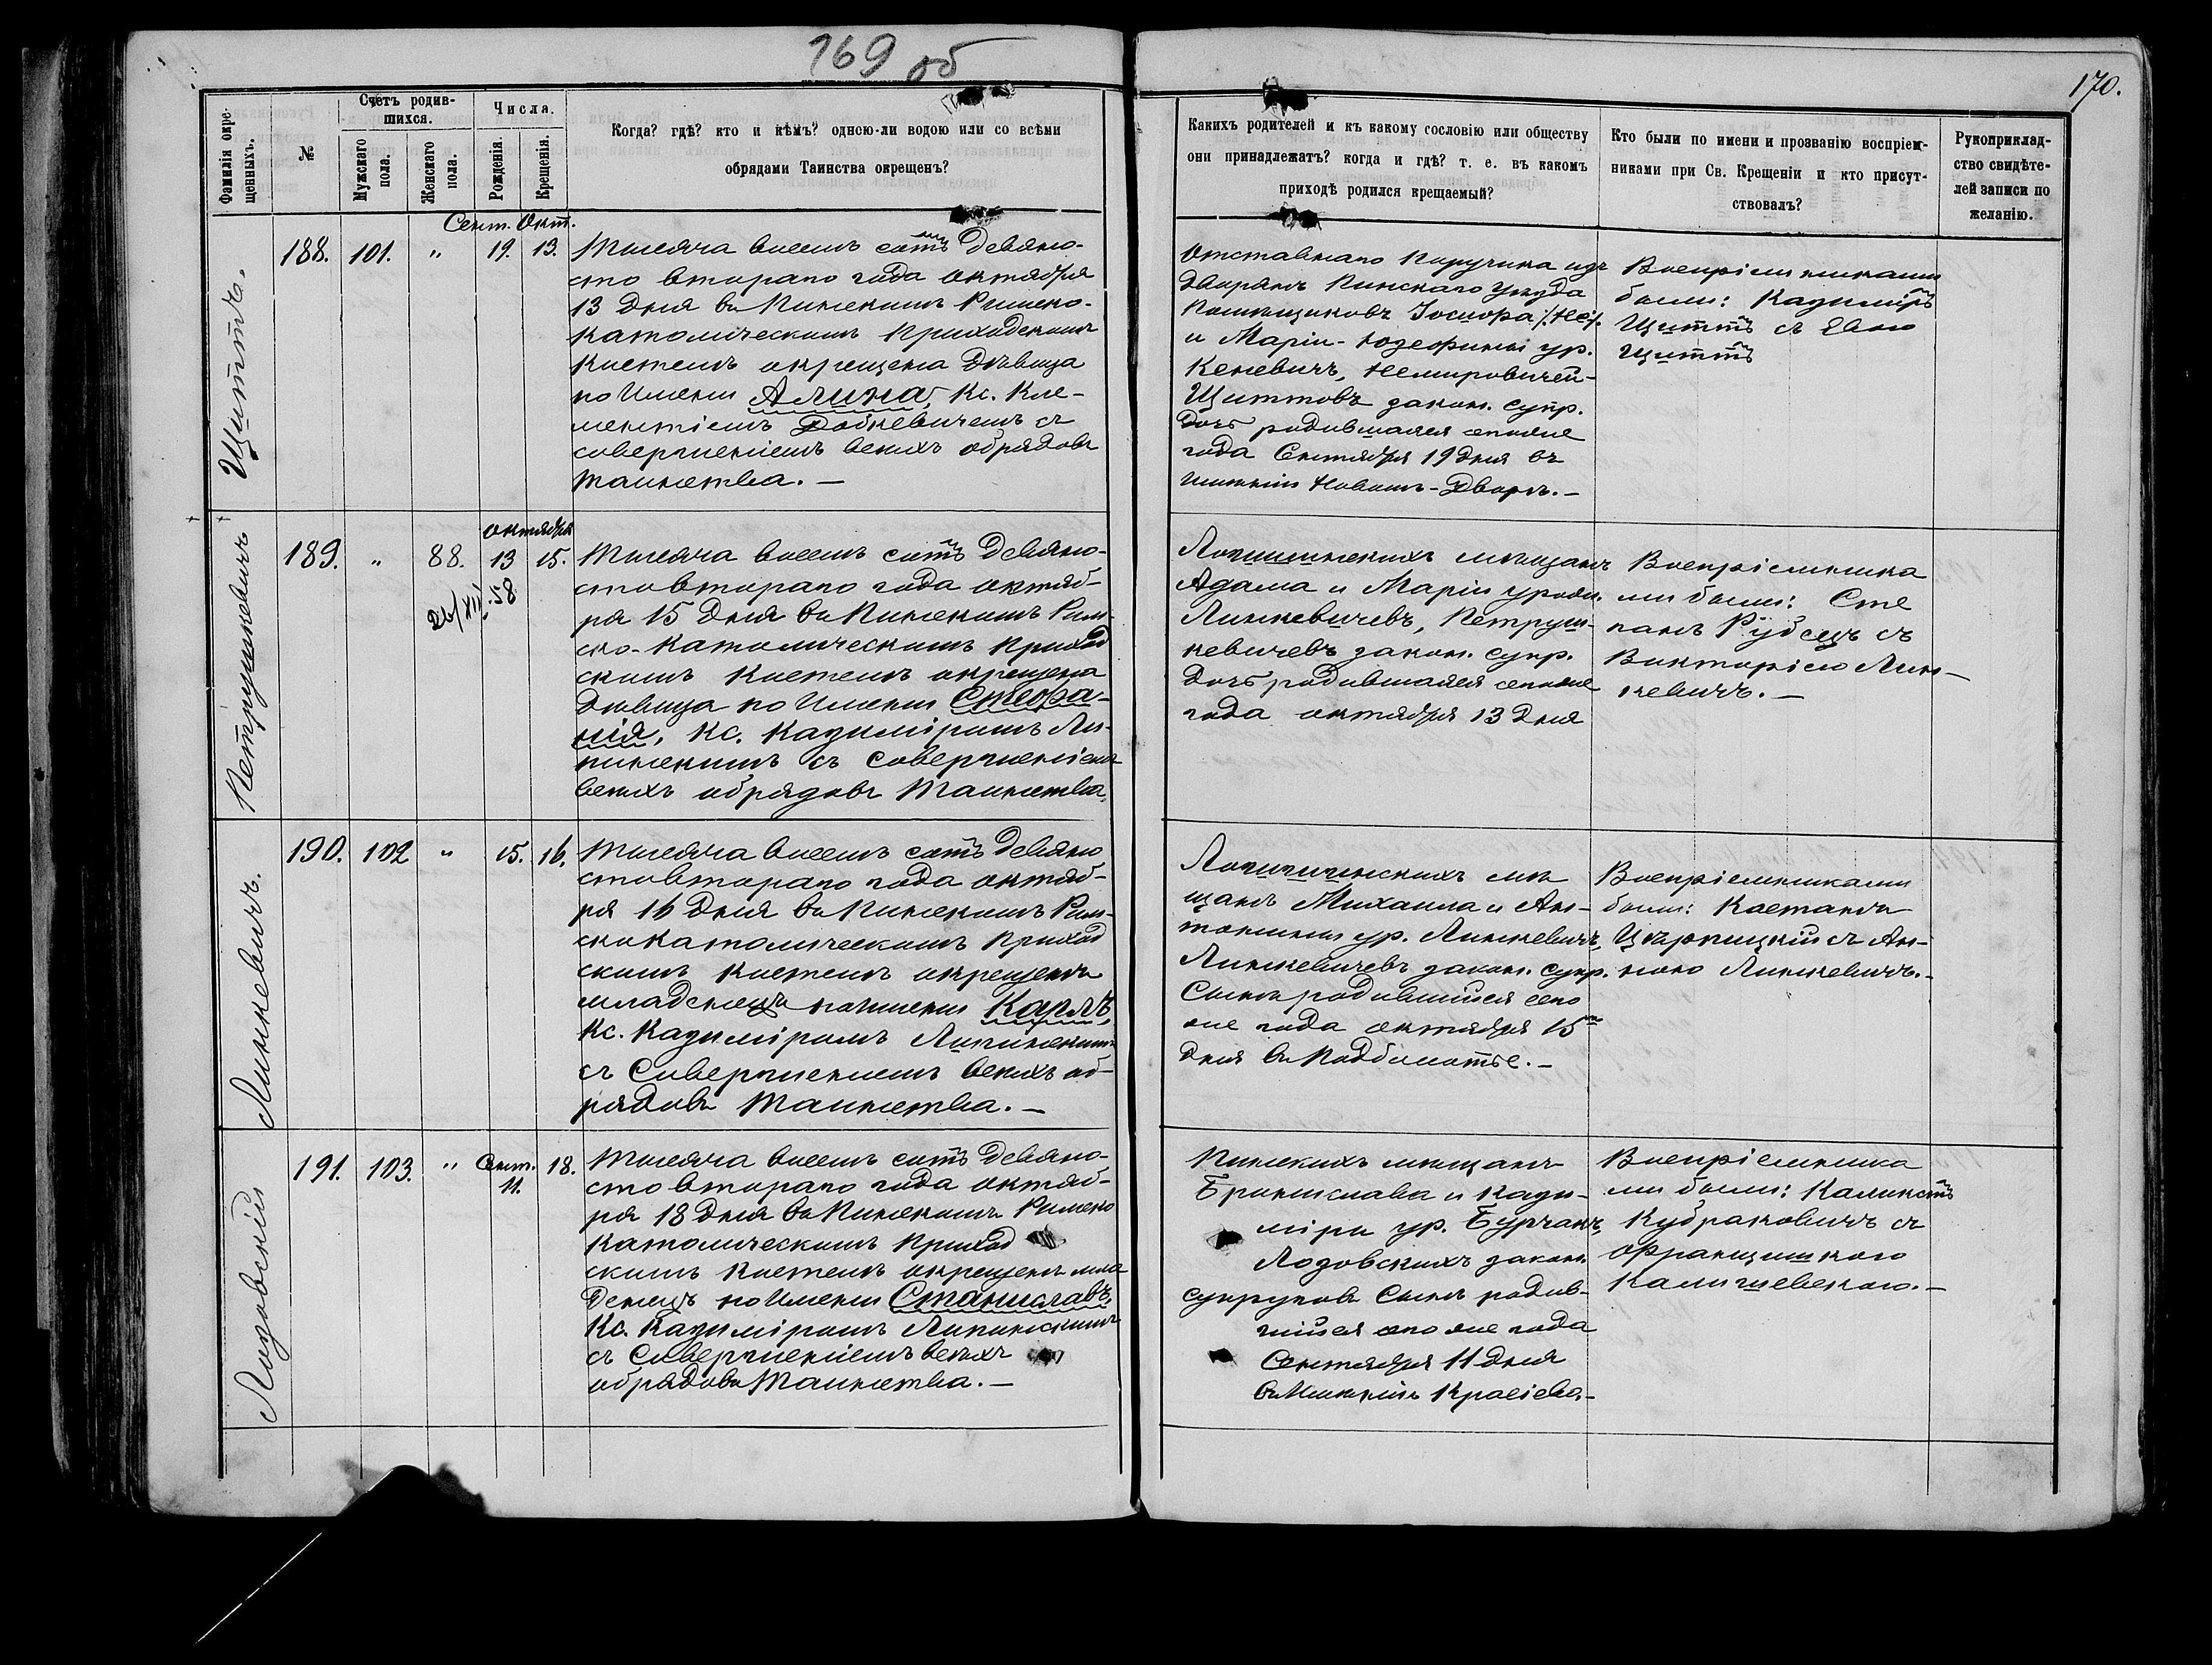 169 об
170.
Фамилія окре-
щенныхъ.
№
Счетъ родив-
шихся.
Мужскаго
пола.
Женскаго
пола.
Числа.
Рожденія.
Крещенія.
Когда? гдѣ? кто и кѣмъ? одною-ли водою или со всѣми
обрядами Таинства окрещенъ?
Какихъ родителей и къ какому сословію или обществу
они принадлежатъ? когда и гдѣ? т. е. въ какомъ
приходѣ родился крещаемый?
Кто были по имени и прозванію воспріем-
никами при Св. Крещеніи и кто присут-
ствовалъ?
Рукоприклад-
ство свидѣте-
лей записи по
желанію.
Щиттъ.
188. 101. " Сент. 19. Окт. 13.
Тысяча восемь сотъ девяно-
сто втораго года октября
13 дня въ Пинскомъ Римско-
католическомъ Приходскомъ
костелѣ окрещена Дѣвица
по Имени Алина, Кс. Кле-
ментіемъ Дойневичемъ съ
совершеніемъ всѣхъ обрядовъ
таинства. —
Отставнаго Поручика изъ
дворянъ Пинскаго уѣзда
Помѣщиковъ Іосифа
и Маріи-Юзефины ур.
Кеневичъ, Немировичей-
Щиттовъ закон. супр.
дочь родившаяся сегоже
года Сентября 19 дня въ
имѣніи Новомъ-Дворѣ. —
Воспріемниками
были: Казиміръ
Щиттъ съ Евою
Щиттъ
Петрушкевичъ
189. " 88. октября 13 15.
26/XII 58
Тысяча восемь сотъ девяно-
сто втораго года октяб-
ря 15 дня въ Пинскомъ Рим-
ско-католическомъ Приход
скомъ костелѣ окрещена
Дѣвица по Имени Стефа-
нія, Кс. Казиміромъ Ли-
пинскимъ съ совершеніемъ
всѣхъ обрядовъ Таинства.
Логишинскихъ мѣщанъ
Адама и Маріи урожд.
Линкевичевъ, Петруш-
кевичевъ закон. супр.
дочь родившаяся сегоже
года октября 13 дня
Воспріемника
ми были: Сте
панъ Рубецъ съ
Викторіею Лин-
кевичъ. —
Линкевичъ.
190. 102 " 15. 16.
Тысяча восемь сотъ девяно
сто втораго года октяб-
ря 16 дня въ Пинскомъ Рим-
ско католическомъ Приход
скомъ костелѣ окрещенъ
младенецъ по имени Карлъ,
Кс. Казиміромъ Липинскимъ
съ Совершеніемъ всѣхъ об-
рядовъ Таинства. —
Логишинскихъ мѣ
щанъ Михаила и Ан-
тонины ур. Линкевичъ,
Линкевичевъ закон. супр.
Сынъ родившійся сего
же года октября 15го
дня въ Подболотье. —
Воспріемниками
были: Костантъ
съ Ан-
ною Линкевичъ. —
Лозовскій
191. 103. " Сент. 11. 18.
Тысяча восемь сотъ девяно-
сто втораго года октяб-
ря 18 дня въ Пинскомъ Римско
католическомъ Приход
скомъ костелѣ окрещенъ мла
денецъ по Имени Станиславъ,
Кс. Казиміромъ Липинскимъ
съ Совершеніемъ всѣхъ
обрядовъ Таинства. —
Пинскихъ мѣщанъ
Бронислава и Кази-
міры ур. Бурчакъ,
Лозовскихъ закон.
супруговъ Сынъ родив-
шійся сего же года
Сентября 11 дня
въ Имѣніи Красіево. —
Воспріемника
ми были: Каликстъ
Кудраковичъ съ
Францишкою
Калишевскою. —